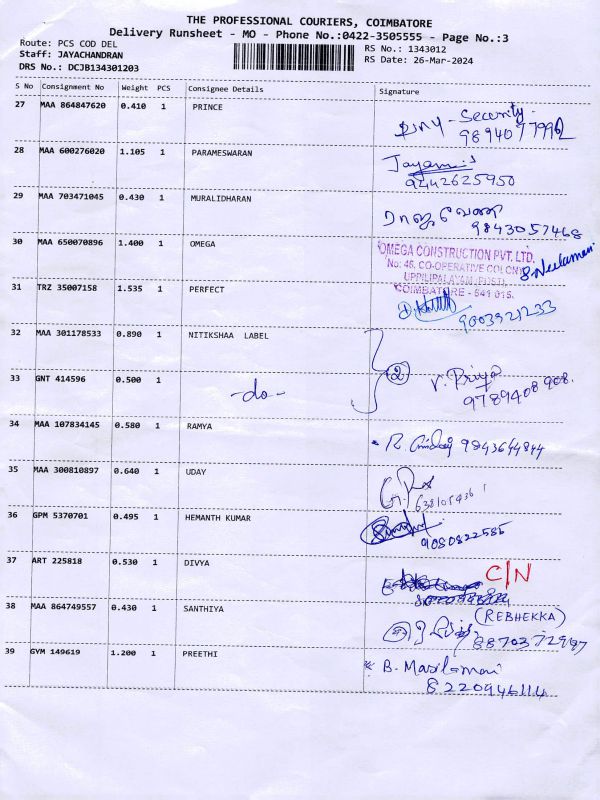 THE PROFESSIONAL COURIERS, COIMBATORE
Delivery Runsheet - MO - Phone No.:0422-3505555 - Page No.:3
Route: PCS COD DEL
RS No.: 1343012
Staff: JAYACHANDRAN
RS Date: 26-Mar-2024
DRS No.: DCJB134301203
S No Consignment No Weight PCS Consignee Details Signature
27 MAA 864847620 0.410 1 PRINCE
Security
9894077992
28 MAA 600276020 1.105 1 PARAMESWARAN
9442625950
29 MAA 703471045 0.430 1 MURALIDHARAN
9843057468
30 MAA 650070896 1.400 1 OMEGA
OMEGA CONSTRUCTION PVT. LTD.
No: 46, CO-OPERATIVE COLONY
UPPILIPALAYAM POST,
COIMBATORE - 641 015.
31 TRZ 35007158 1.535 1 PERFECT
9003921233
32 MAA 301178533 0.890 1 NITIKSHAA LABEL
2
33 GNT 414596 0.500 1 -do-
V. Priya
9789408908.
34 MAA 107834145 0.580 1 RAMYA
9843644844
35 MAA 300810897 0.640 1 UDAY
36 GPM 5370701 0.495 1 HEMANTH KUMAR
9080822585
37 ART 225818 0.530 1 DIVYA
C/N
38 MAA 864749557 0.430 1 SANTHIYA
(REBHEKKA)
8870372997
39 GYM 149619 1.200 1 PREETHI
B. Masilamani
8220946114